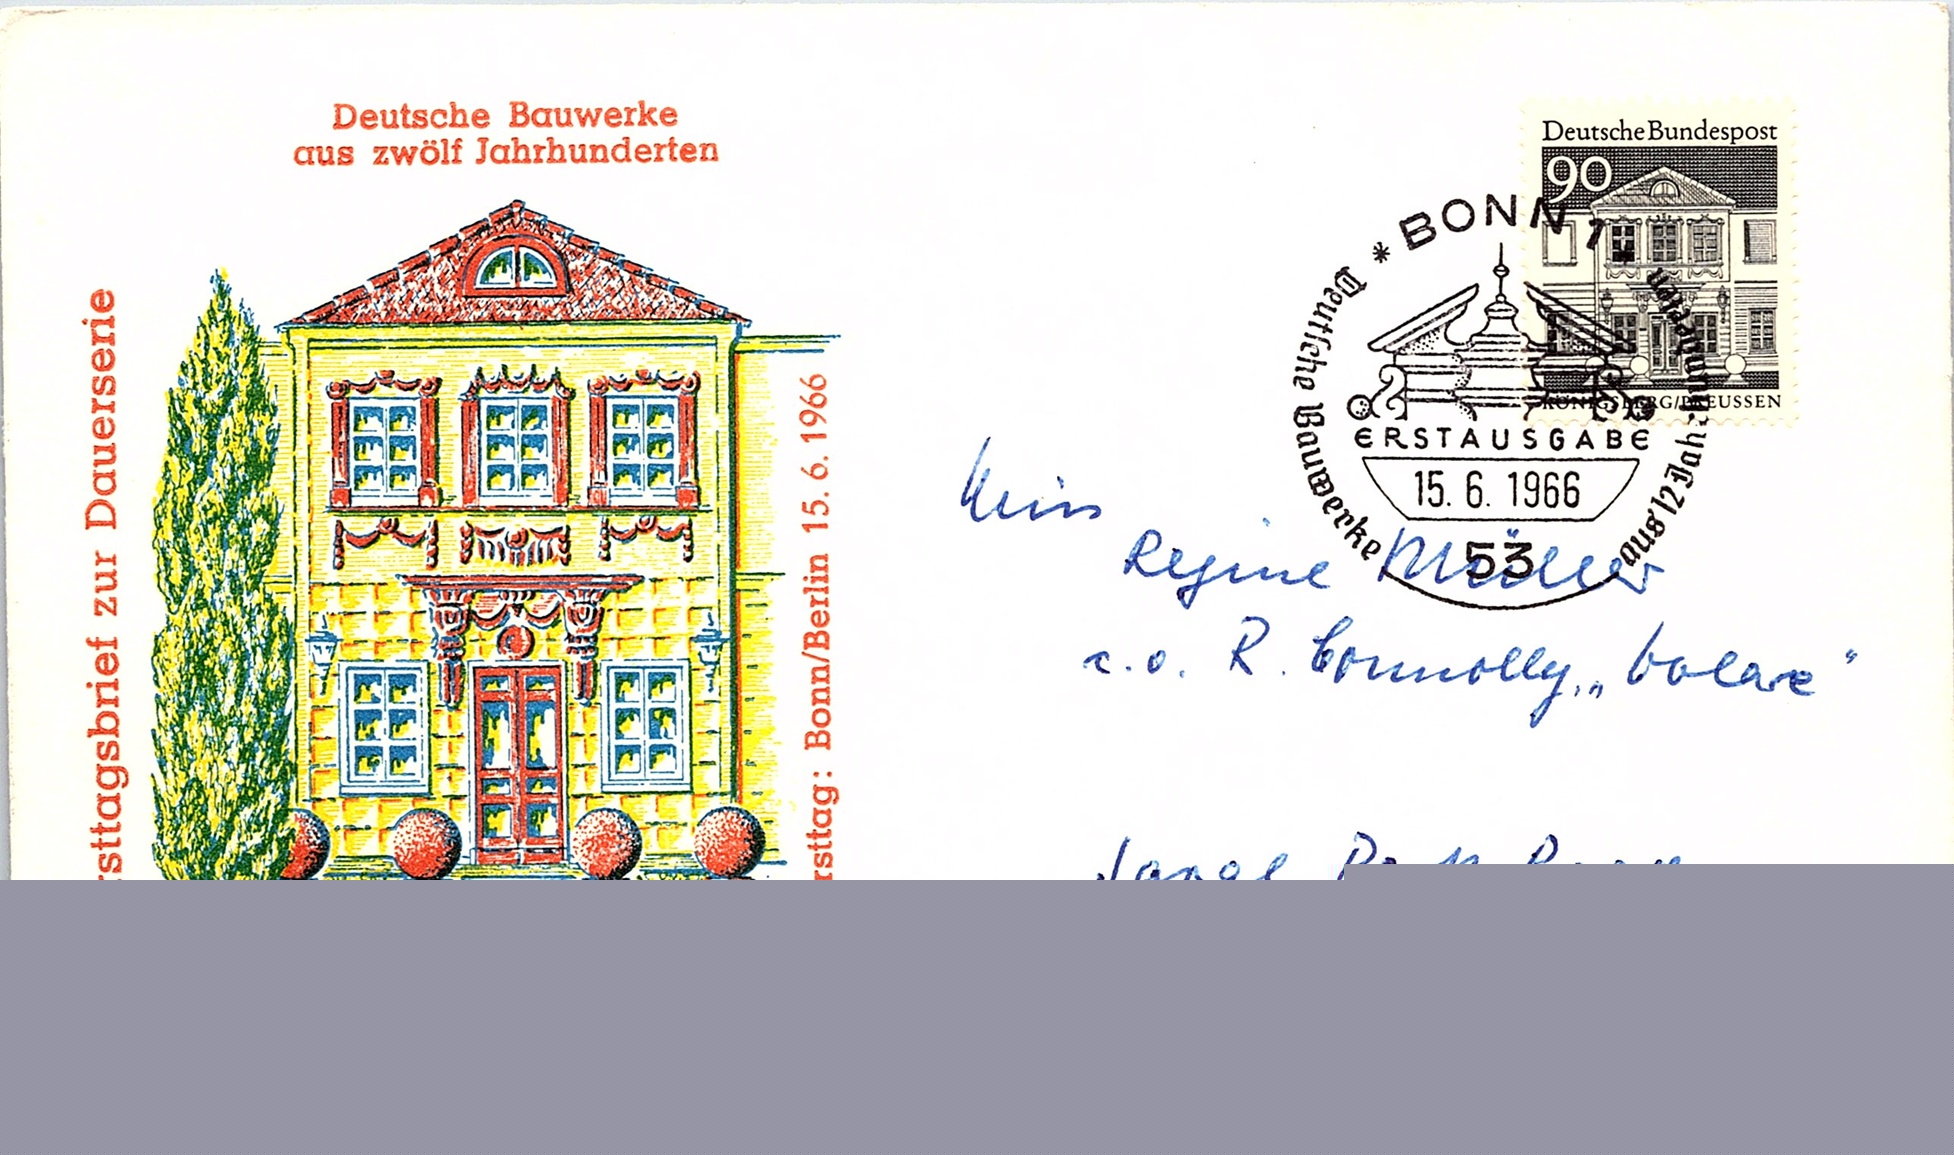 Deutsche Bauwerke
aus zwölf Jahrhunderten
rsttagsbrief zur Dauerserie
rsttag: Bonn/Berlin 15. 6. 1966
Deutsche Bundespost
90
KÖNIGSBERG/PREUSSEN
* BONN 1
Deutsche Bauwerke aus 12 Jahrhunderten
ERSTAUSGABE
15. 6. 1966
53
Miss
Regine Müller
c.o. R. Connolly, „Volare"